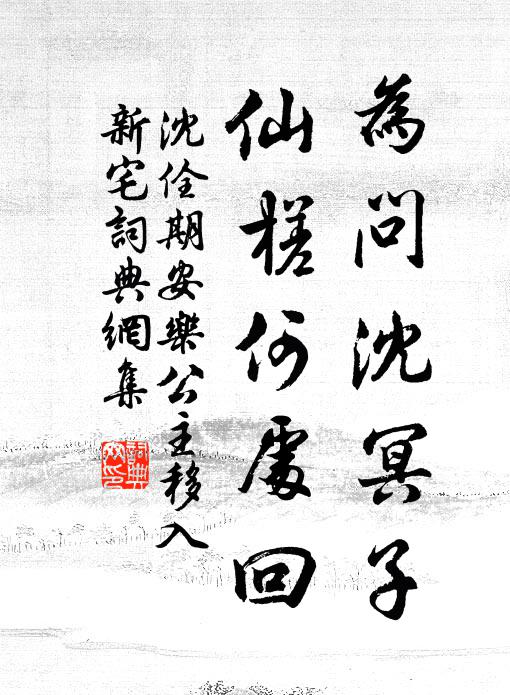 為問沈冥子
仙槎何處回
沈佺期安樂公主移入
新宅詞典網集
詞典網印